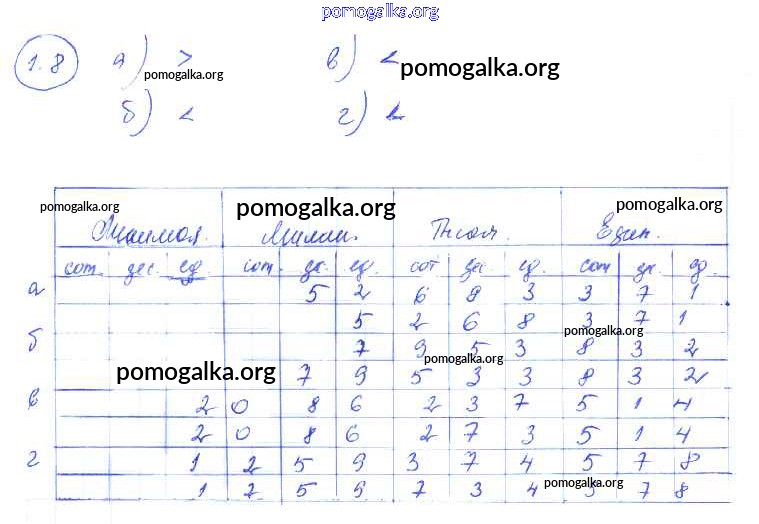 pomogalka.org
1.8 а) > в) <
pomogalka.org pomogalka.org
б) < г) <
pomogalka.org pomogalka.org pomogalka.org
Милли. Тысяч. Един.
сот. дес. ед. сот. дес. ед. сот дес. ед. сот дес. ед.
а 5 2 6 8 3 3 7 1
5 2 6 8 3 7 1
pomogalka.org
б 7 9 5 3 8 3 2
pomogalka.org
pomogalka.org 7 9 5 3 3 8 3 2
в 2 0 8 6 2 3 7 5 1 4
2 0 8 6 2 7 3 5 1 4
г 1 2 5 9 3 7 4 5 7 8
pomogalka.org
1 2 5 9 7 3 4 5 7 8